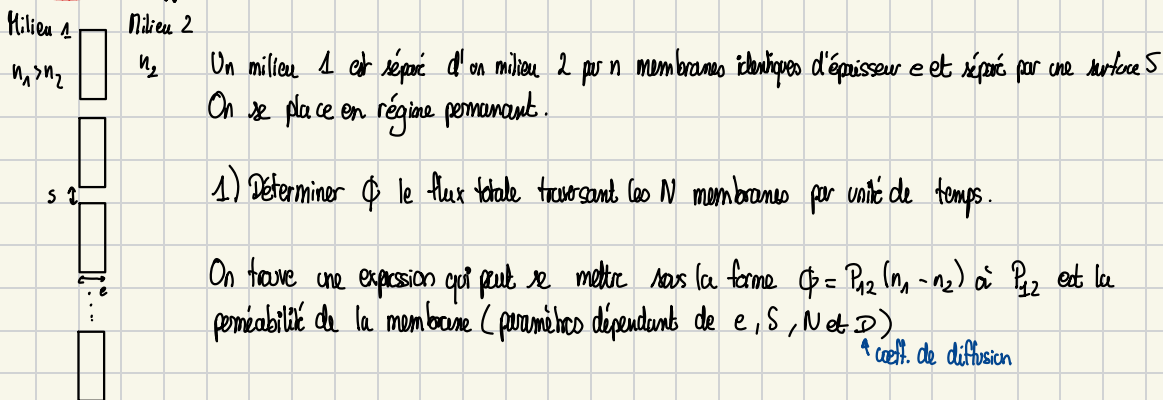 Milieu 1 Milieu 2
n₁>n₂ n₂
Un milieu 1 est séparé d'un milieu 2 par n membranes identiques d'épaisseur e et séparé par une surface S
On se place en régime permanant.
s
1) Déterminer ϕ le flux totale traversant les N membranes par unité de temps.
On trouve une expression qui peut se mettre sous la forme ϕ = P₁₂ (n₁ - n₂) où P₁₂ est la
e
perméabilité de la membrane (paramètres dépendant de e, S, N et D)
coeff. de diffusion